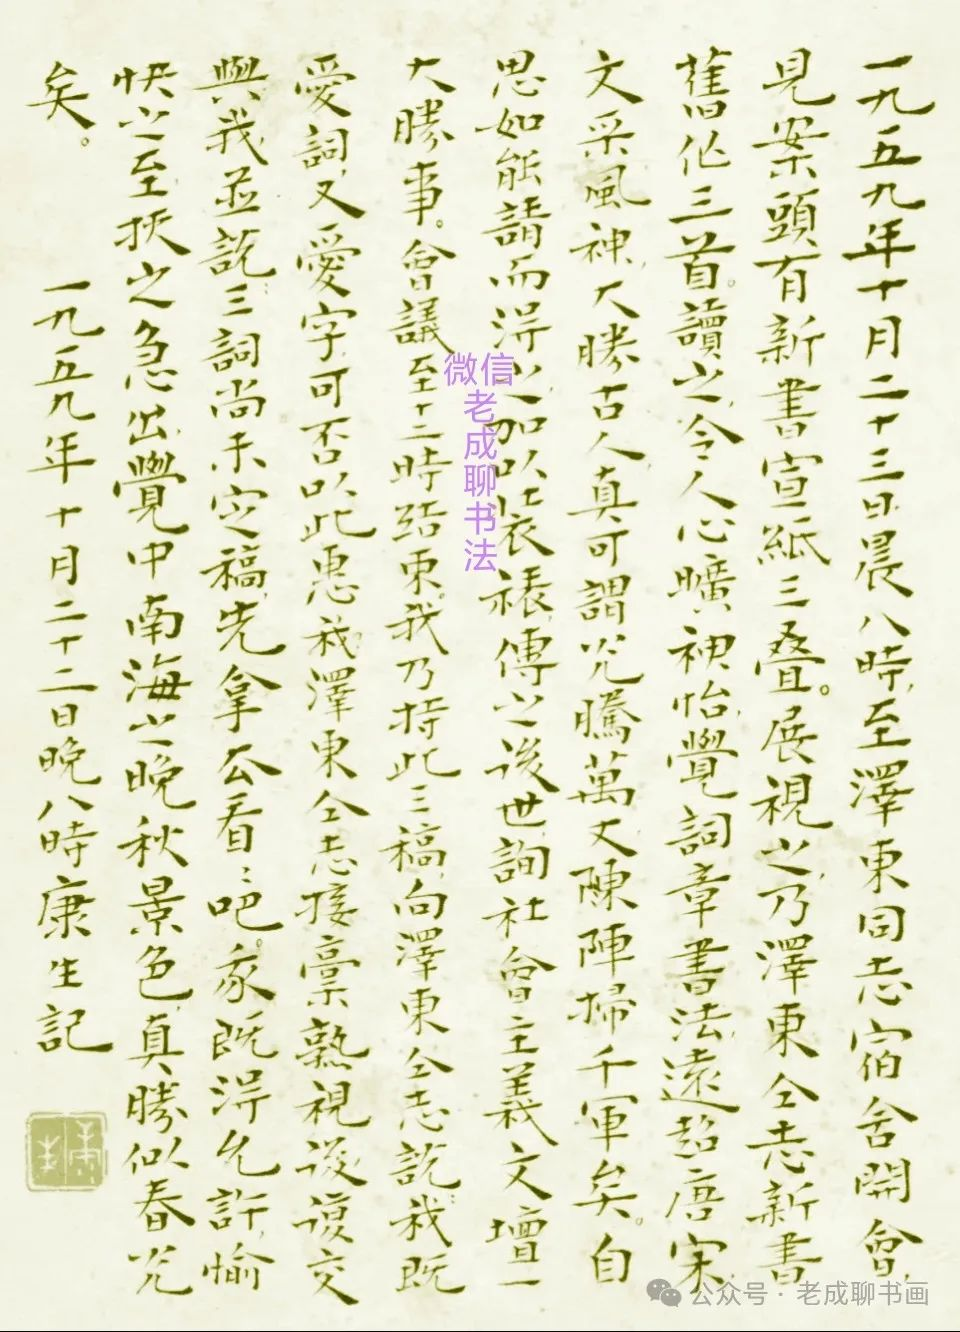 一九五九年十月二十三日晨八時，至澤東同志宿舍開會，
見案頭有新書宣紙三叠。展視之，乃澤東仝志新書
舊作三首。讀之，令人心曠神怡，覺詞章書法，遠超唐宋，
文采風神，大勝古人，真可謂光騰萬丈陳陣掃千軍矣。自
思如能請而得之，加以裝裱，傳之後世，詢社會主義文壇一
大勝事。會議至十二時結束。我乃持此三稿，向澤東仝志說：我既
愛詞，又愛字，可否以此惠我，澤東仝志接稾熟視後，復交
與我並説：三詞尚未定稿，先拿去看看吧。余既得允許，愉
快之至，挾之急出，覺中南海之晚秋景色，真勝似春光
矣。
一九五九年十月二十二日晚八時康生記
微信
老成聊书法
公众号·老成聊书画